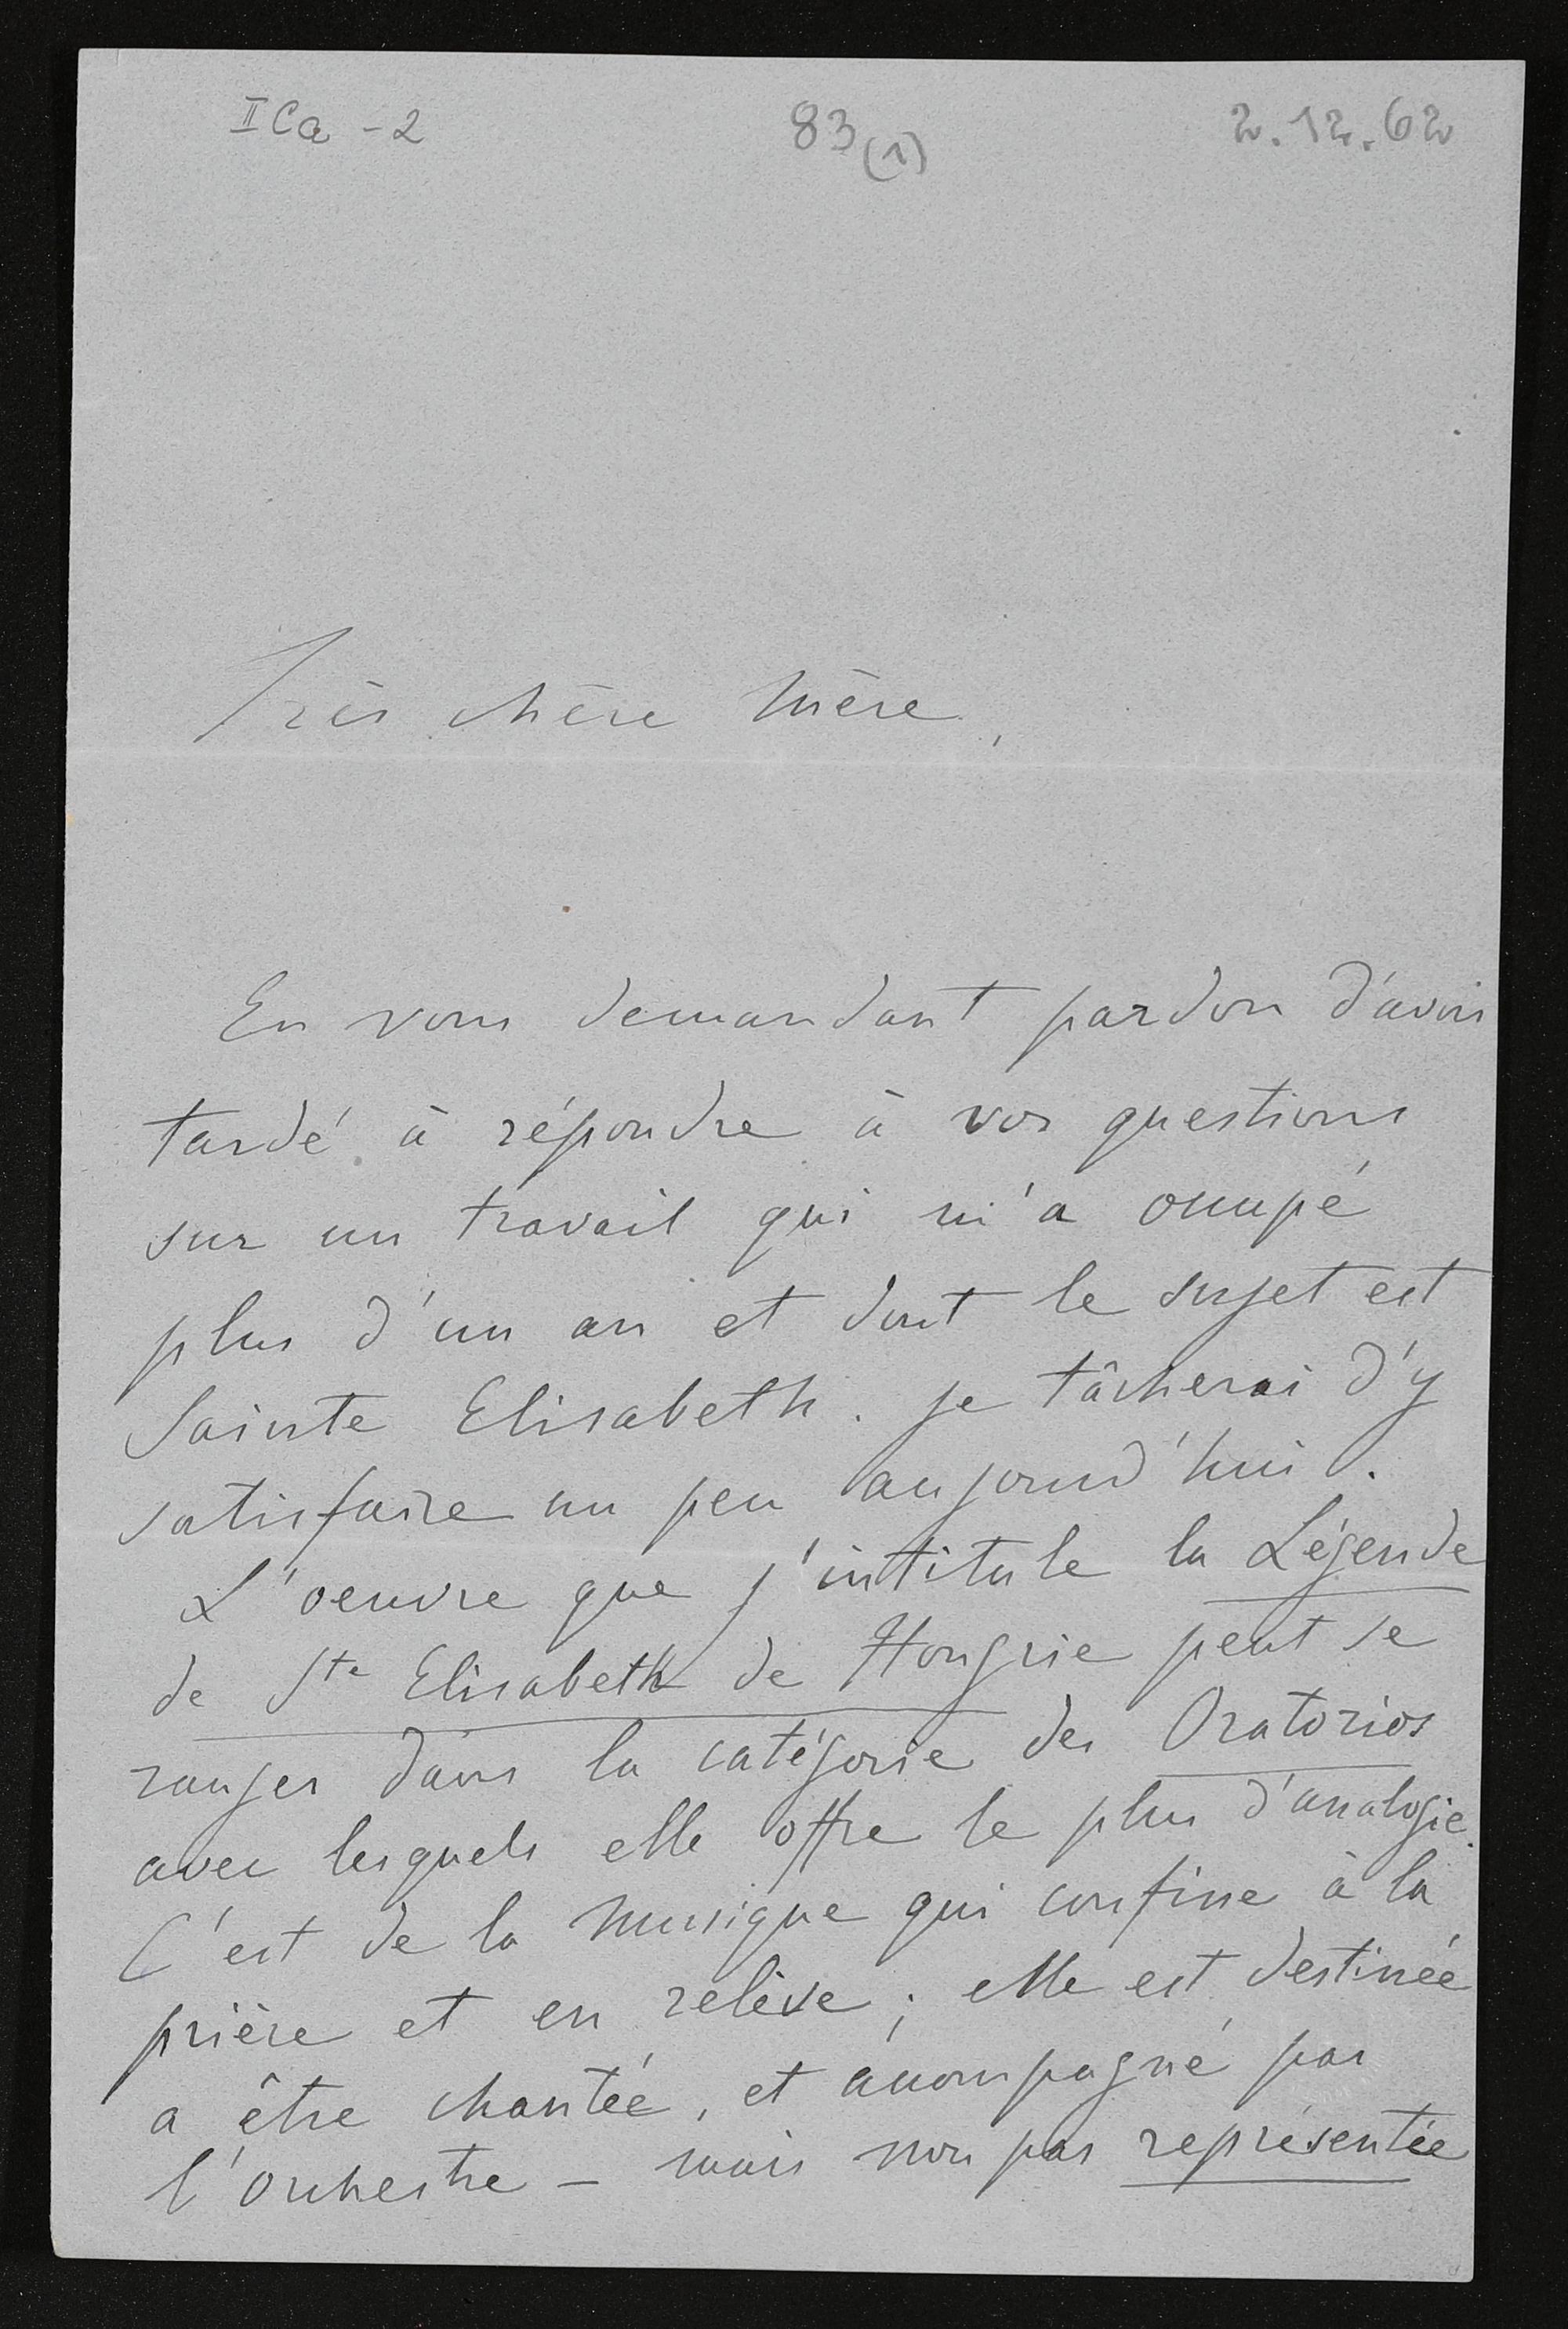 II Ca - 2
83 (1)
2.12.62
Très chère Mère,
En vous demandant pardon d'avoir
tardé à répondre à vos questions
sur un travail qui m'a occupé
plus d'un an et dont le sujet est
Sainte Elisabeth. je tâcherai d'y
satisfaire un peu aujourd'hui.
L'oeuvre que j'intitule la Légende
de Ste Elisabeth de Hongrie peut se
ranger dans la catégorie des Oratorios
avec lesquels elle offre le plus d'analogie.
C'est de la Musique qui confine à la
prière et en relève; elle est destinée
a être chantée, et accompagné par
l'Orchestre – mais non pas représentée